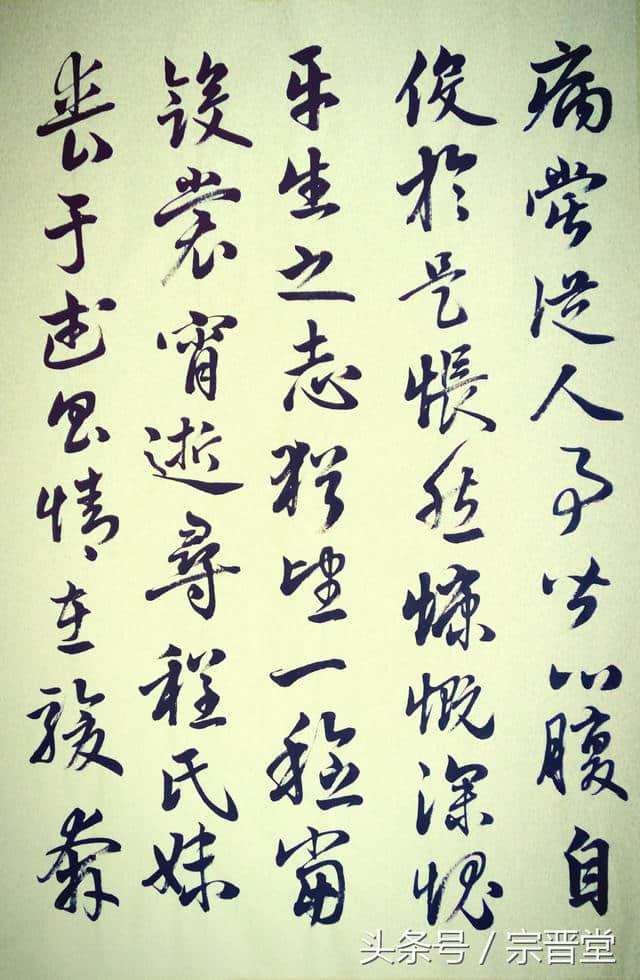 病嘗從人事皆口腹自
役於是悵然慷慨深愧
平生之志猶望一稔當
斂裳宵逝尋程氏妹
喪于武昌情在駿奔
头条号 / 宗晋堂